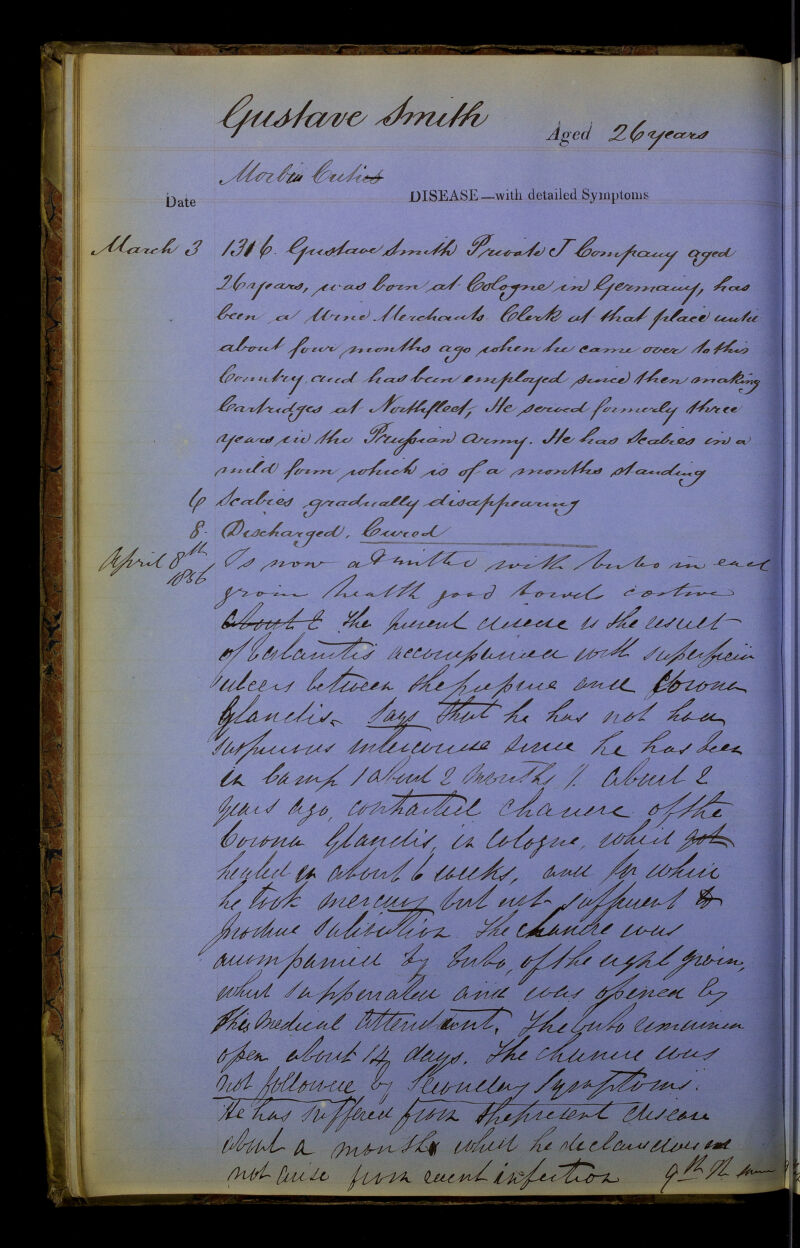 Gustave Smith
Aged 26 years
Morbi Cutis
Date DISEASE—with detailed Symptoms
March 3 1316. Gustave Smith Private J Company aged
26 years, was born at Cologne in Germany, has
been a Wine Merchants Clerk at that place until
about four months ago when he came over to this
Country, and has been employed since then making
Cartridges at Northfleet, He served formerly three
years in the Prussian Army. He has Scabies in a
mild form which is of a months standing
6 Scabies gradually disappearing
8. Discharged. Cured
April 8th 1856 Is now admitted with bubo in each
groin health good bowels costive
about 2 The present disease is the result
of balanitis accompanied with superficial
ulcers between the prepuce and Corona
Glandis. Says that he has not had
suspicious intercourse since he has been
in Camp (about 2 months). About 2
years ago, contracted chancre of the
Corona Glandis, in Cologne, which got
healed in about 6 weeks, and for which
he took mercury but not sufficient to
produce salivation. The chancre was
accompanied by bubo, of the right groin,
which suppurated and was opened by
his Medical Attendant. The bubo remained
open about 14 days. The chancre was
not followed by Secondary Symptoms.
He has suffered from the present disease
about a month which he declares does
not arise from recent infection 9th